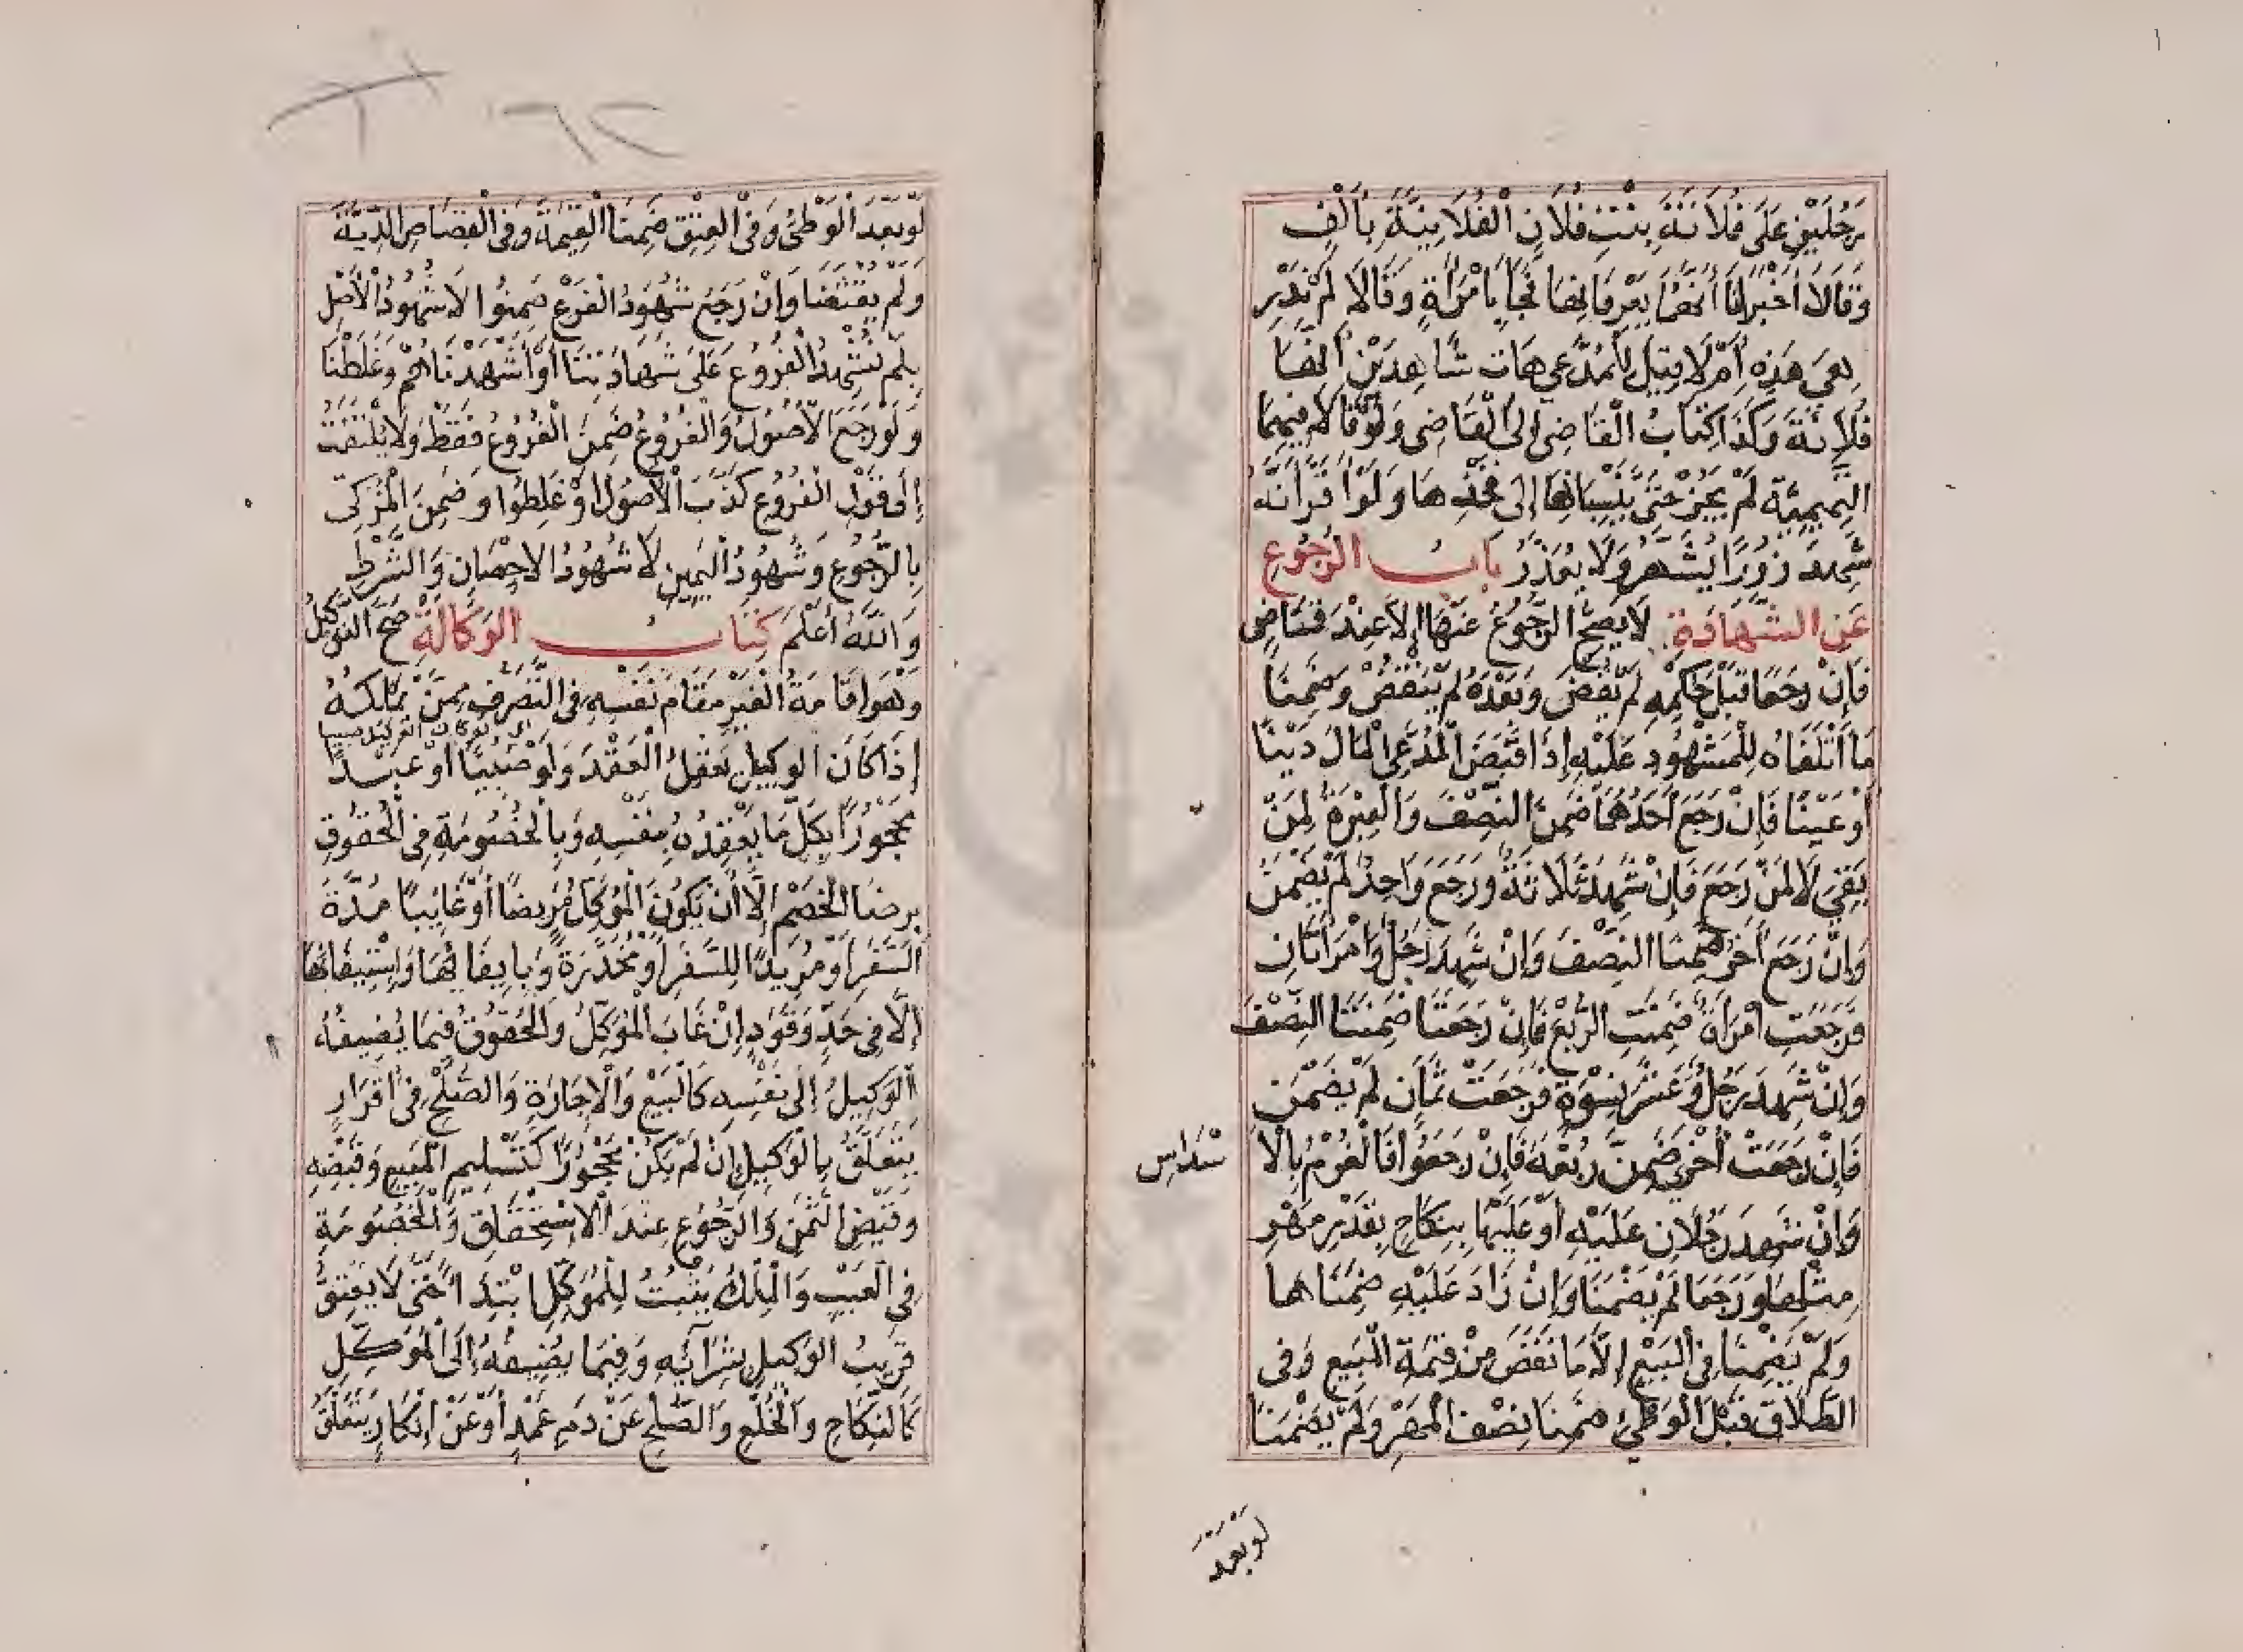 رَجُلَيْنِ عَلَى فُلَانَةَ بِنْتِ فُلَانِ الْفُلَانِيَّةِ بِأَلْفٍ
وَقَالَا أَخْبَرَانَا أَنَّهُمَا يَعْرِفَانِهَا فَجَاءَ بِامْرَأَةٍ وَقَالَا لَمْ نَدْرِ
هِيَ هَذِهِ أَمْ لَا قِيلَ لِلْمُدَّعِي هَاتِ شَاهِدَيْنِ أَنَّهَا
فُلَانَةُ وَكَذَا كِتَابُ الْقَاضِي إِلَى الْقَاضِي وَلَوْ قَالَا فِيهِمَا
التَّمِيمِيَّةُ لَمْ يَجُزْ حَتَّى يَنْسِبَانِهَا إِلَى فَخْذِهَا وَلَوْ أَقَرَّ أَنَّهُ
شَهِدَ زُورًا يُشَهَّرُ وَلَا يُعَزَّرُ بَابُ الرُّجُوعِ
عَنِ الشَّهَادَةِ لَا يَصِحُّ الرُّجُوعُ عَنْهَا إِلَّا عِنْدَ قَاضِى
فَإِنْ رَجَعَا قَبْلَ حُكْمِهِ لَمْ يَقْضِ وَبَعْدَهُ لَمْ يَنْقُضْ وَضَمِنَا
مَا أَتْلَفَاهُ لِلْمَشْهُودِ عَلَيْهِ إِذَا قَبَضَ الْمُدَّعِي الْمَالَ دَيْنًا
أَوْ عَيْنًا فَإِنْ رَجَعَ أَحَدُهُمَا ضَمِنَ النِّصْفَ وَالْعِبْرَةُ لِمَنْ
بَقِيَ لَا لِمَنْ رَجَعَ فَإِنْ شَهِدَ ثَلَاثَةٌ وَرَجَعَ وَاحِدٌ لَمْ يَضْمَنْ
وَإِنْ رَجَعَ أَخَرُ ضَمِنَا النِّصْفَ وَإِنْ شَهِدَ رَجُلٌ وَامْرَأَتَانِ
فَرَجَعَتِ امْرَأَةٌ ضَمِنَتِ الرُّبْعَ فَإِنْ رَجَعَتَا ضَمِنَتَا النِّصْفَ
وَإِنْ شَهِدَ رَجُلٌ وَعَشْرُ نِسْوَةٍ فَرَجَعَتْ ثَمَانٍ لَمْ يَضْمَنَّ
فَإِنْ رَجَعَتْ أُخْرَى ضَمِنَّ رُبُعَهُ فَإِنْ رَجَعُوا فَالْغُرْمُ بِالْأَ
سْدَاسِ
وَإِنْ شَهِدَ رَجُلَانِ عَلَيْهِ أَوْ عَلَيْهَا بِنِكَاحٍ بِقَدْرِ مَهْرِ
مِثْلِهَا وَرَجَعَا لَمْ يَضْمَنَا وَإِنْ زَادَ عَلَيْهِ ضَمِنَاهَا
وَلَمْ يَضْمَنَا فِي الْبَيْعِ إِلَّا مَا نَقَصَ مِنْ قِيمَةِ الْمَبِيعِ وَفِي
الطَّلَاقِ قَبْلَ الْوَطْئِ ضَمِنَا نِصْفَ الْمَهْرِ وَلَمْ يَضْمَنَا
لَوْ بَعْدَ
لَوْ بَعْدَ الْوَطْئِ وَفِي الْعِتْقِ ضَمِنَا الْقِيمَةَ وَفِي الْقِصَاصِ الدِّيَةَ
وَلَمْ يُقْتَصَّا وَإِنْ رَجَعَ شُهُودُ الْفَرْعِ ضَمِنُوا لَا شُهُودُ الْأَصْلِ
بِلَمْ نُشْهِدِ الْفُرُوعَ عَلَى شَهَادَتِنَا أَوْ أَشْهَدْنَاهُمْ وَغَلَطْنَا
وَلَوْ رَجَعَ الْأُصُولُ وَالْفُرُوعُ ضَمِنَ الْفُرُوعُ فَقَطْ وَلَا يُلْتَفَتُ
إِلَى قَوْلِ الْفُرُوعِ كَذَبَ الْأُصُولُ أَوْ غَلِطُوا وَضَمِنَ الْمُزَكِّي
بِالرُّجُوعِ وَشُهُودُ الْيَمِينِ لَا شُهُودُ الْإِحْصَانِ وَالشَّرْطِ
وَاللَّهُ أَعْلَمَ كِتَابُ الْوَكَالَةِ صَحَّ التَّوْكِيلُ
وَهُوَ إِقَامَةُ الْغَيْرِ مَقَامَ نَفْسِهِ فِي التَّصَرُّفِ مِمَّنْ يَمْلِكُهُ
إِذَا كَانَ الْوَكِيلُ يَعْقِلُ الْعَقْدَ وَلَوْ صَبِيًّا أَوْ عَبْدًا
مَحْجُورًا بِكُلِّ مَا يَعْقِدُهُ بِنَفْسِهِ وَبِالْخُصُومَةِ فِي الْحُقُوقِ
بِرِضَا الْخَصْمِ إِلَّا أَنْ يَكُونَ الْمُوَكِّلُ مَرِيضًا أَوْ غَائِبًا مُدَّةَ
السَّفَرِ أَوْ مُرِيدًا لِلسَّفَرِ أَوْ مُخَدَّرَةً وَبِإِيفَائِهَا وَاسْتِيفَائِهَا
إِلَّا فِي حَدٍّ وَقَوَدٍ إِنْ غَابَ الْمُوَكِّلُ وَالْحُقُوقُ فِيمَا يُضِيفُهُ
الْوَكِيلُ إِلَى نَفْسِهِ كَالْبَيْعِ وَالْإِجَارَةِ وَالصُّلْحِ فِى أَقْرَارٍ
يَتَعَلَّقُ بِالْوَكِيلِ إِنْ لَمْ يَكُنْ مَحْجُورًا كَتَسْلِيمِ الْمَبِيعِ وَقَبْضِهِ
وَقَبْضِ الثَّمَنِ وَالرُّجُوعِ عِنْدَ الْإِسْتِحْقَاقِ وَالْخُصُومَةِ
فِي الْعَيْبِ وَالْمِلْكُ يَثْبُتُ لِلْمُوَكِّلِ ابْتِدَاءً حَتَّى لَا يَعْتِقُ
قَرِيبُ الْوَكِيلِ بِشِرَائِهِ وَفِيمَا يُضِيفُهُ إِلَى الْمُوَكِّلِ
كَالنِّكَاحِ وَالْخُلْعِ وَالصُّلْحِ عَنْ دَمِ عَمْدٍ أَوْ عَنْ إِنْكَارٍ يَتَعَلَّقُ